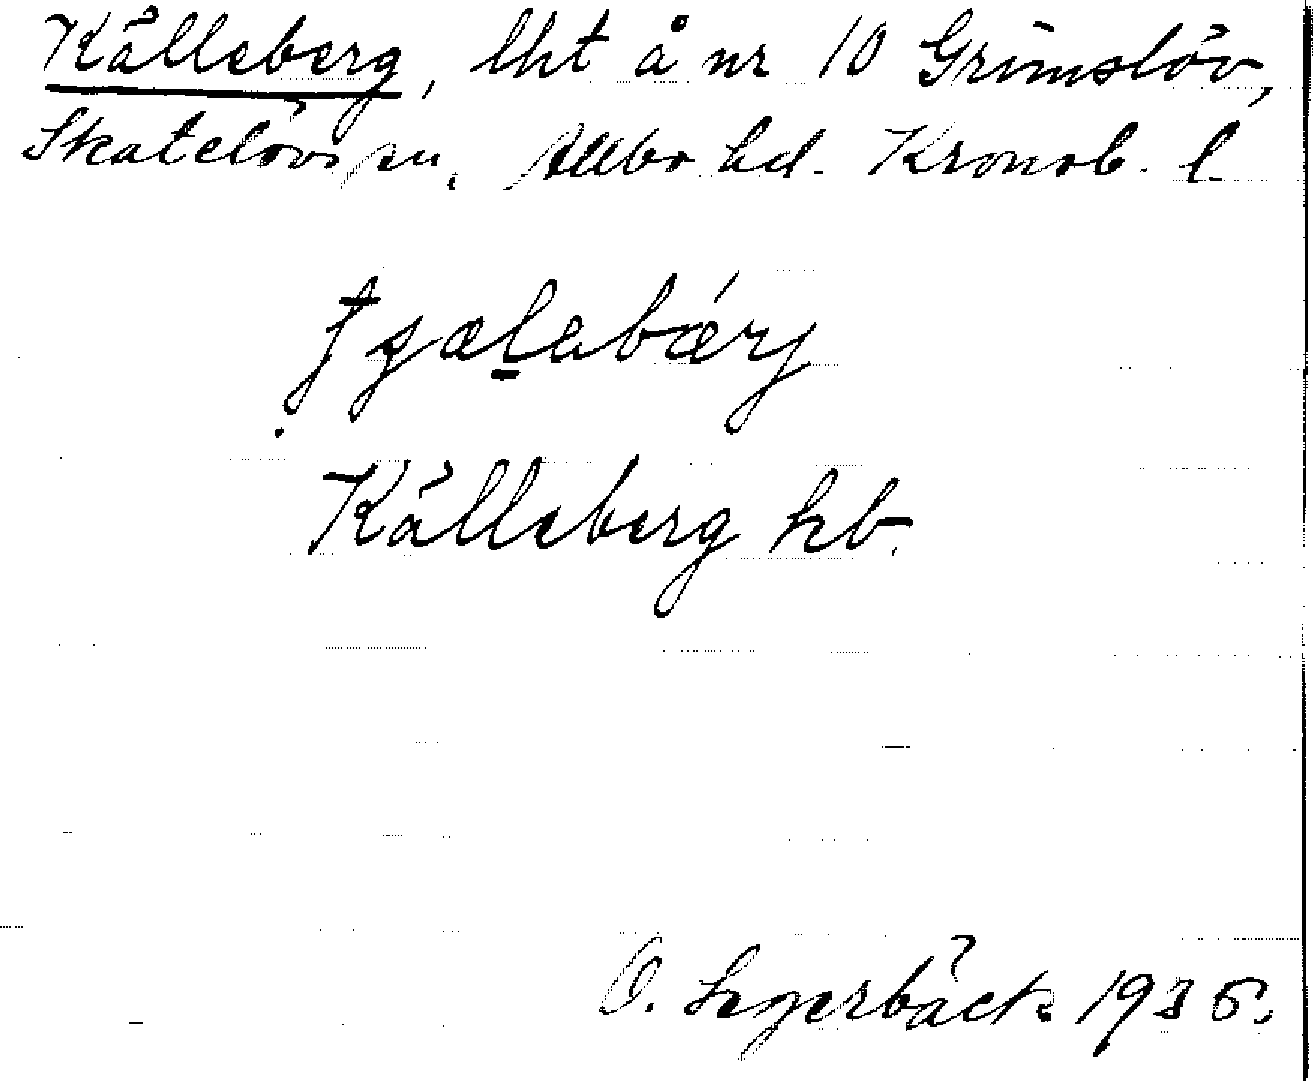 Källeberg, lht å nr 10 Grimslöv,
Skatelövs sn, Allbo hd. Kronob. l.
Källeberg hb.
O. Segerbäck 1935.